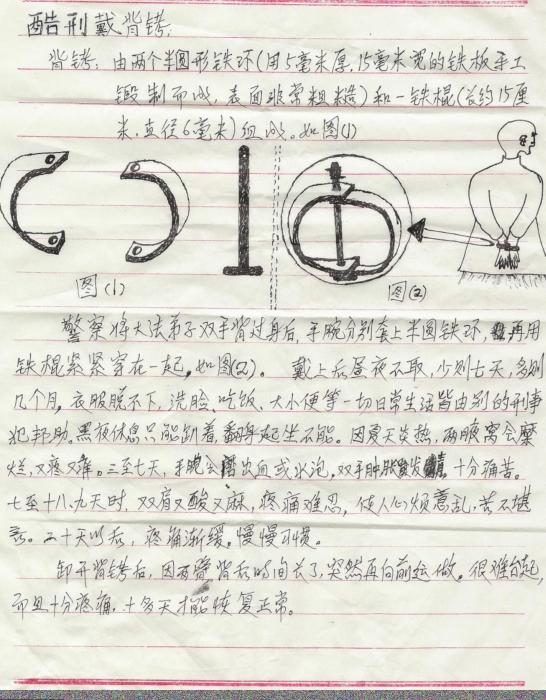 酷刑戴背铐:
背铐: 由两个半圆形铁环(用5毫米厚,15毫米宽的铁板手工
锻制而成,表面非常粗糙)和一铁棍(长约15厘
米,直径6毫米)组成。如图(1)
图(1)
图(2)
警察将大法弟子双手背过身后,手腕分别套上半圆铁环,再用
铁棍紧紧穿在一起,如图(2)。 戴上后昼夜不取,少则七天,多则
几个月,衣服脱不下,洗脸、吃饭、大小便等一切日常生活皆由别的刑事
犯帮助,黑夜休息只能趴着,翻身起坐不能。因夏天炎热,两腋窝会糜
烂,又疼又痒。三至七天,手腕会出血或水泡,双手肿胀发 十分痛苦。
七至十八、九天时,双肩又酸又麻,疼痛难忍,使人心烦意乱,苦不堪
言。二十天以后,疼痛渐缓,慢慢习惯。
卸开背铐后,因两臂背后时间长了,突然再向前运做,很难抬起,
而且十分疼痛,十多天才能恢复正常。